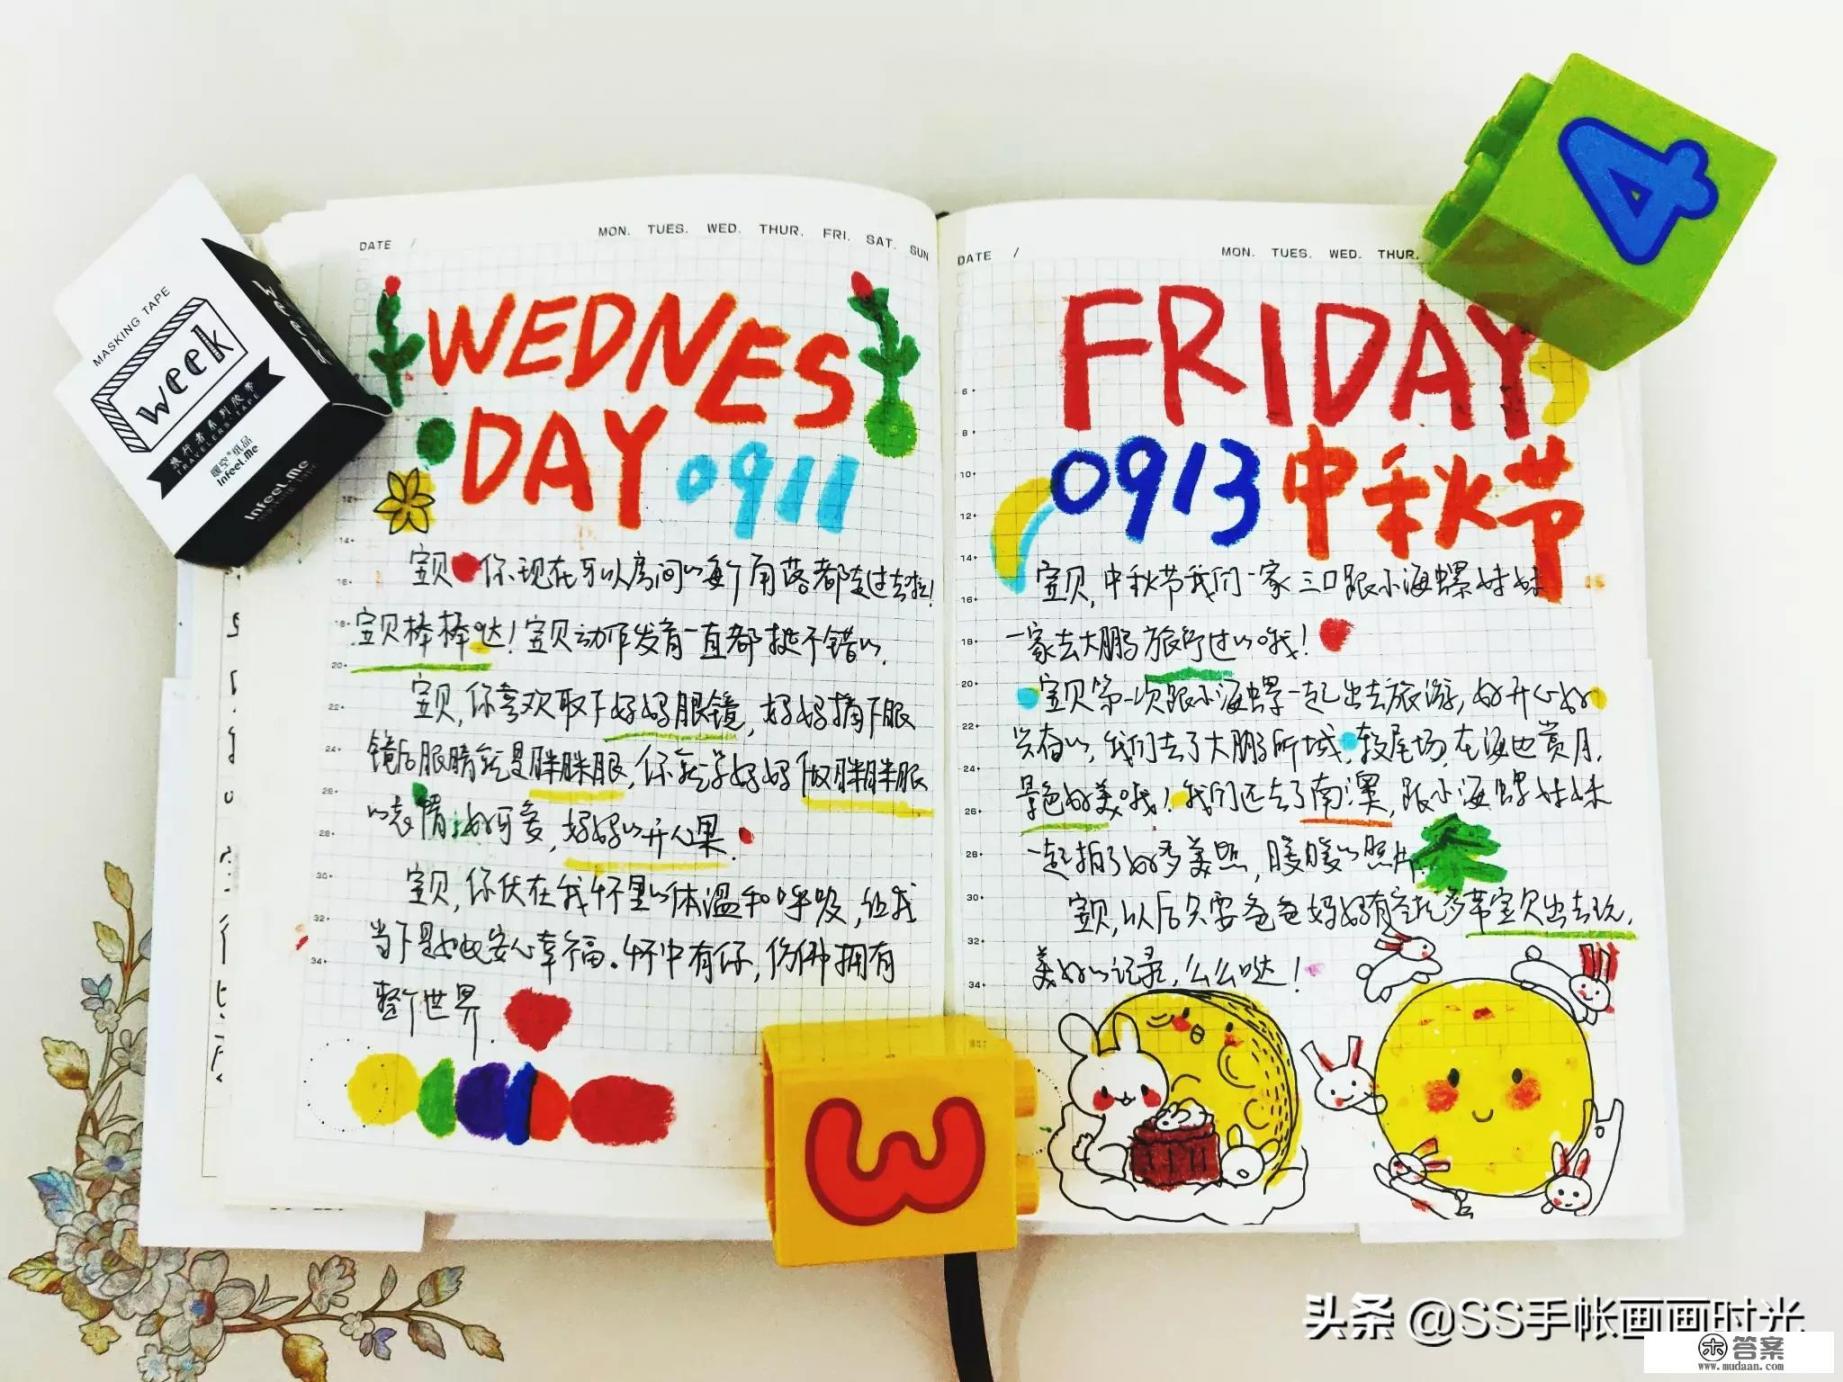 MASKING TAPE
week
旅行者系列胶带
TRAVELER'S TAPE
InFeel.Me
InFeel.Me
DATE /
MON. TUES. WED. THUR. FRI. SAT. SUN
WEDNES
DAY 0911
宝贝 你现在可以房间的每个角落都走过去啦!
宝贝棒棒哒!宝贝动作发育一直都挺不错的.
宝贝,你喜欢取下妈妈眼镜,妈妈摘下眼
镜后眼睛就是眯眯眼,你就学妈妈做眯眯眼
的表情,好可爱,妈妈的开心果.
宝贝,你伏在我怀里的体温和呼吸,让我
当下是如此安心幸福.怀中有你,仿佛拥有
整个世界.
DATE /
MON. TUES. WED. THUR.
FRIDAY
0913 中秋节
宝贝,中秋节我们一家三口跟小海螺妹妹
一家去大鹏旅行过的哦!
宝贝第一次跟小海螺一起出去旅游,好开心好
兴奋的,我们去了大鹏所城,较尾场,在海边赏月,
景色好美哦!我们还去了南澳,跟小海螺妹妹
一起拍了好多美照,暖暖的照片.
宝贝,以后只要爸爸妈妈有空就多带宝贝出去玩,
美好的记录,么么哒!
4
3
头条 @SS手帐画画时光
答案
www.mudaan.com